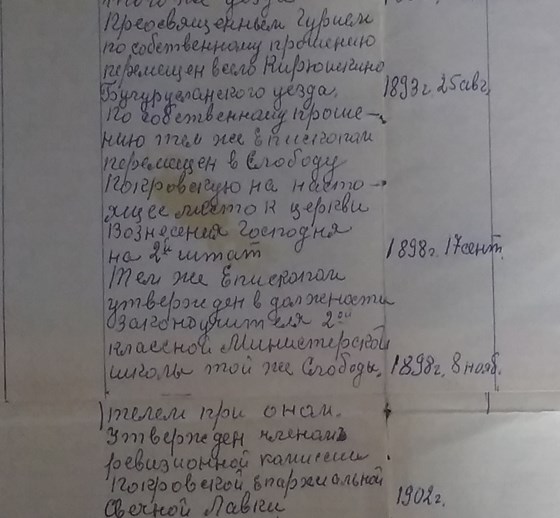 того же уезда
Преосвященным Гурием
по собственному прошению
перемещен в село Кирюшкино
Бугурусланского уезда. 1893 г. 25 авг.
По собственному проше-
нию тем же Епископом
перемещен в Слободу
Покровскую на насто-
ящее место к церкви
Вознесения Господня
на 2й штат 1898 г. 17 сент.
Тем же Епископом
утвержден в должности
Законоучителя 2ой
классной Министерской
школы той же Слободы. 1898 г. 8 нояб.
телем при оном.
Утвержден членомъ
ревизионной комиссии
Покровской Епархиальной
Свечной Лавки 1902 г.